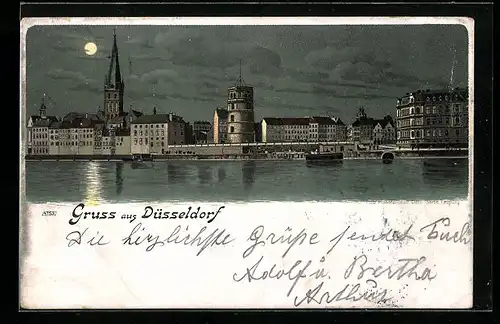 Gruss aus Düsseldorf
Die herzlichste Grüße sendet Euch
Adolf u. Bertha
Arthur